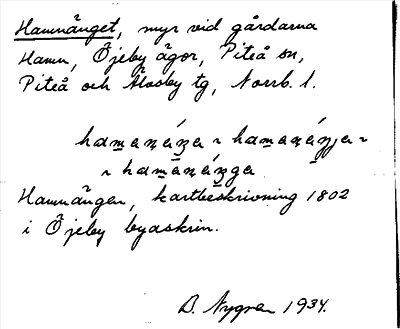 Hamnänget, myr vid gårdarna
Hamn, Öjeby ägor, Piteå sn,
Piteå och Älvsby tg, Norrb. l.
Hamnängen, kartbeskrivning 1802
i Öjeby byaskrin.
B. Nygren 1934.